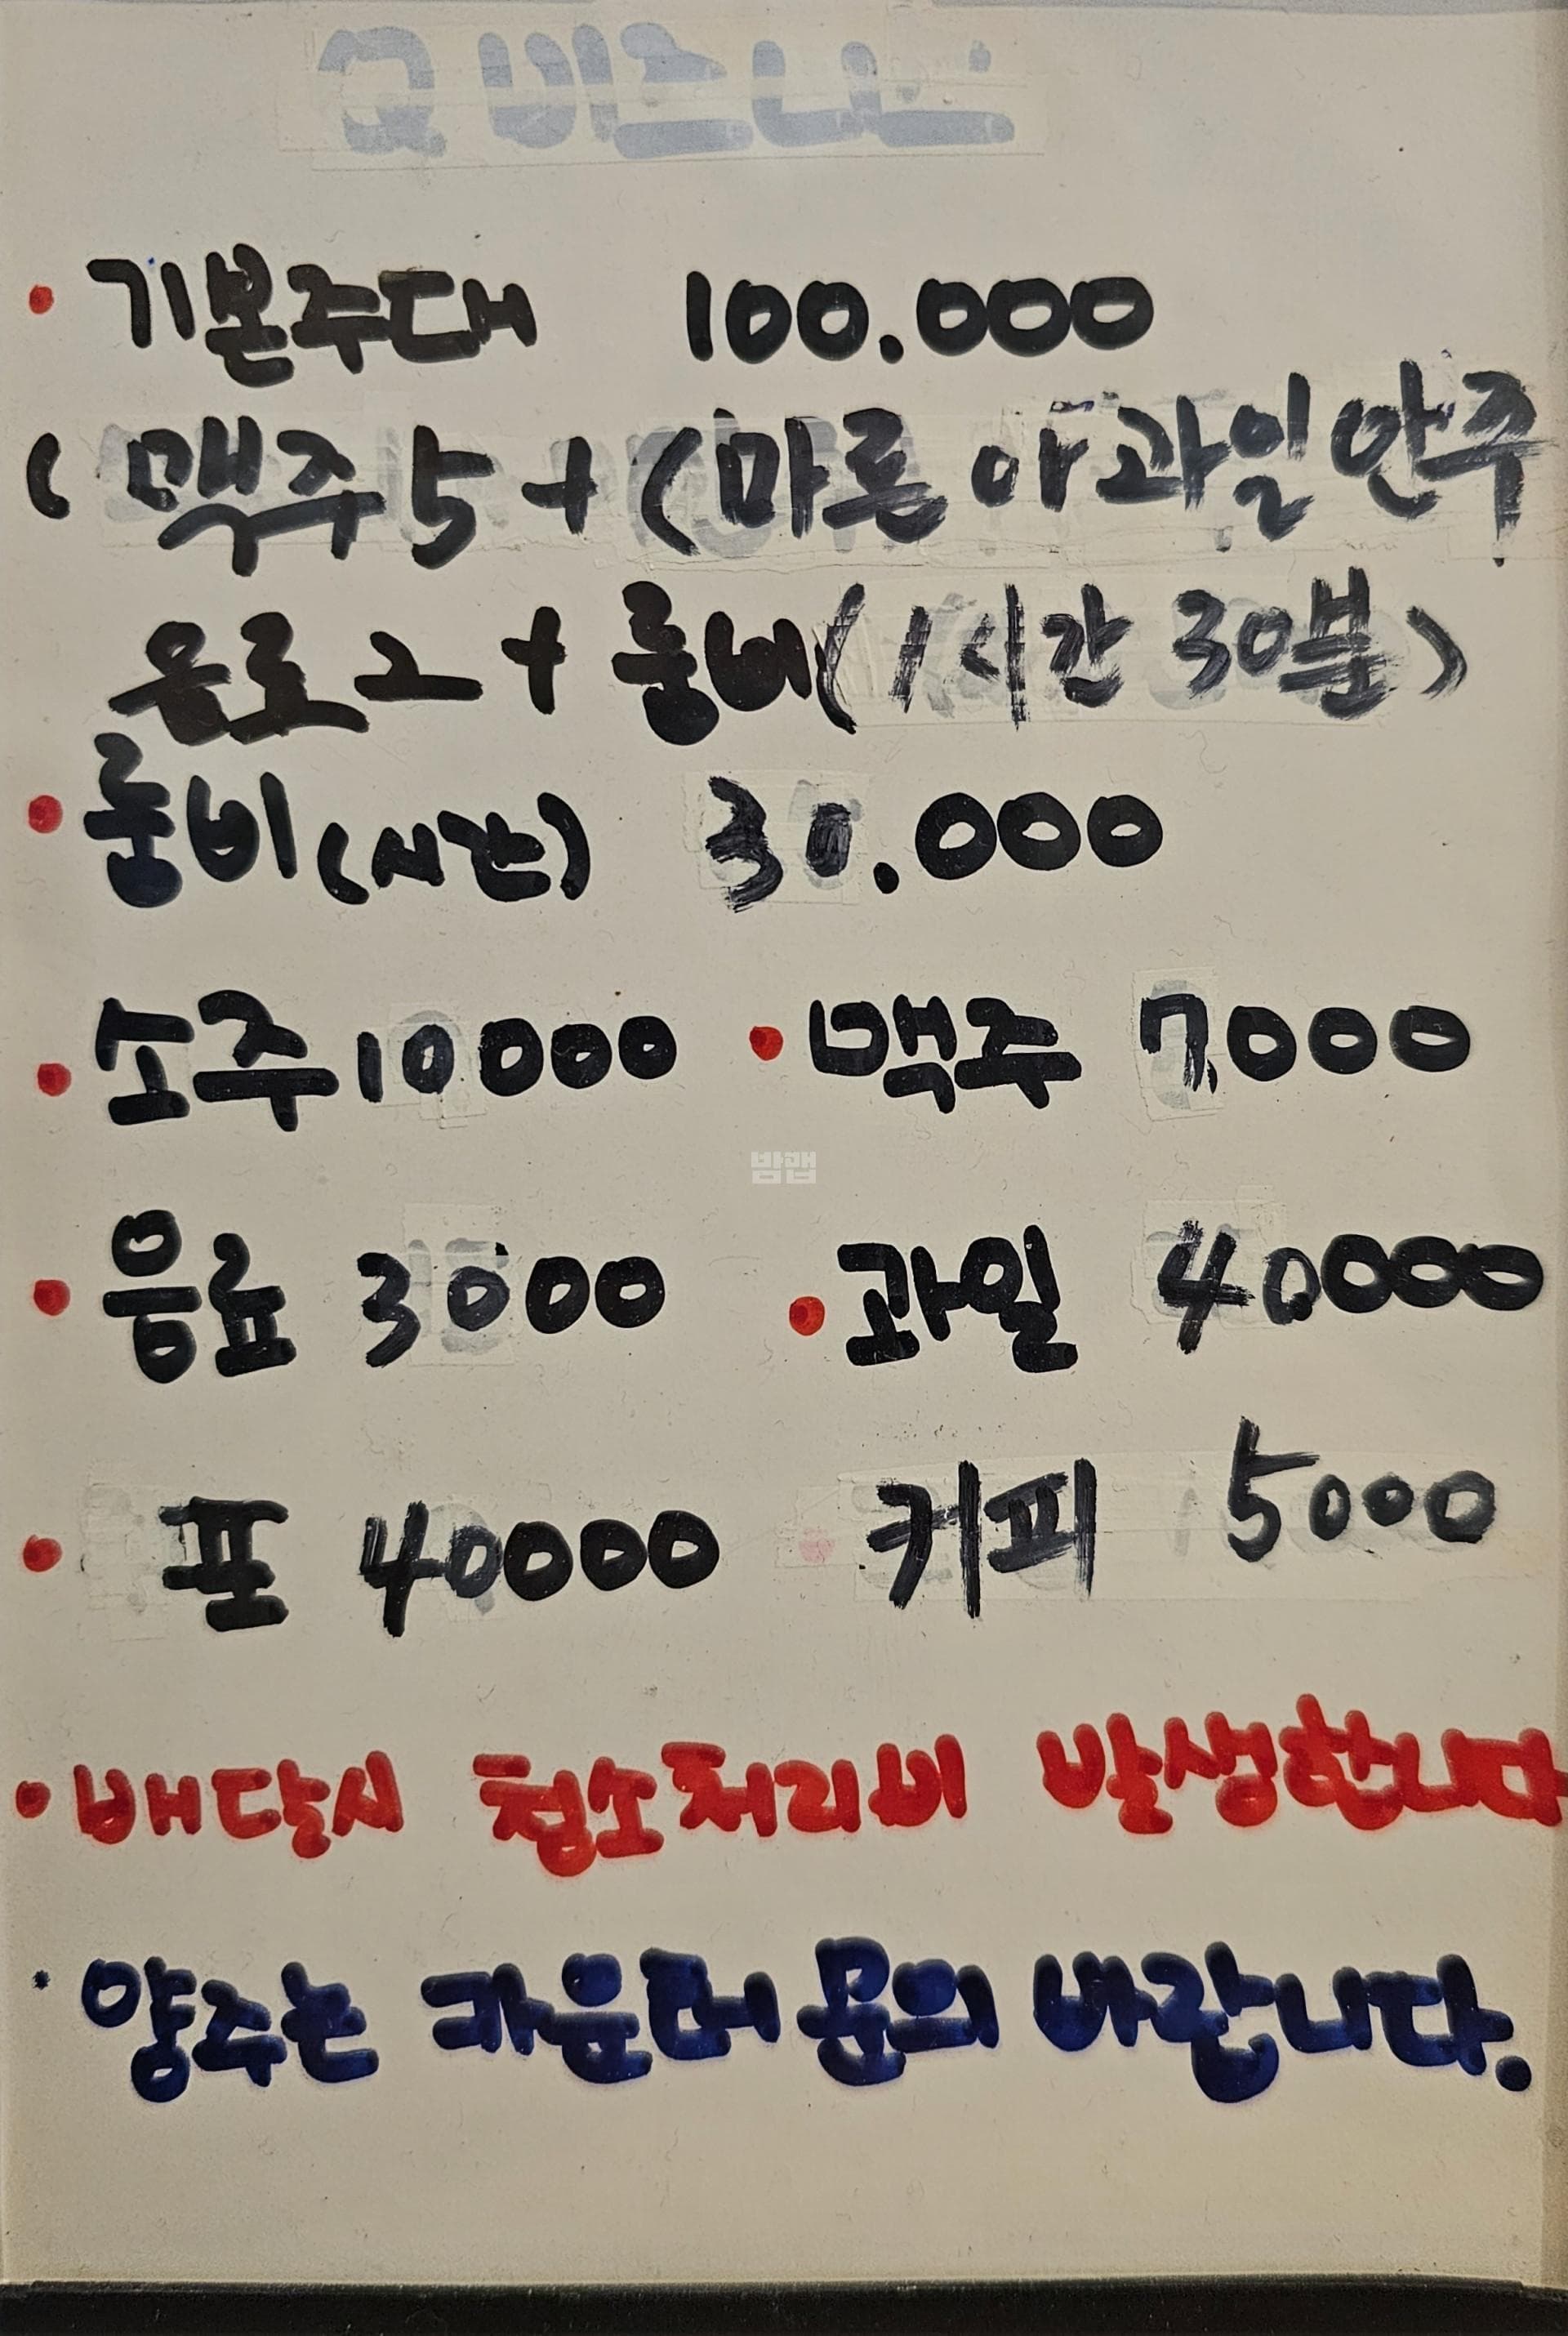 Q 비즈니스
• 기본주대 100.000
( 맥주5 + (마른 아 과일 안주
음료2 + 룸비(1시간 30분)
• 룸비(시간) 30.000
• 소주 10000 • 맥주 7.000
밤맵
• 음료 3000 • 과일 40000
• 포 40000 커피 5000
• 배달시 청소처리비 발생합니다
• 양주는 카운터 문의 바랍니다.